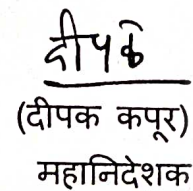 दीपक
(दीपक कपूर)
महानिदेशक